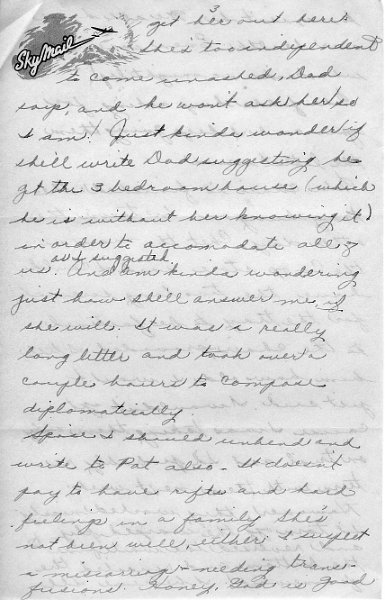 Sky Mail
3
get her out here.
She's too independent
to come unasked, Dad
says, and he won't ask her so
I am. Just kinda wonder if
she'll write Dad suggesting he
get the 3 bedroom house (which
he is without her knowing it)
in order to accomodate all of
us. as I suggested. And am kinda wondering
just how she'll answer me, if
she will. It was a really
long letter and took over a
couple hours to compose
diplomatically.
Spose I should unbend and
write to Pat also. It doesn't
pay to have rifts and hard
feelings in a family. She's
not been well, either. I suspect
a miscarriage needing trans-
fusions. Honey, God is good